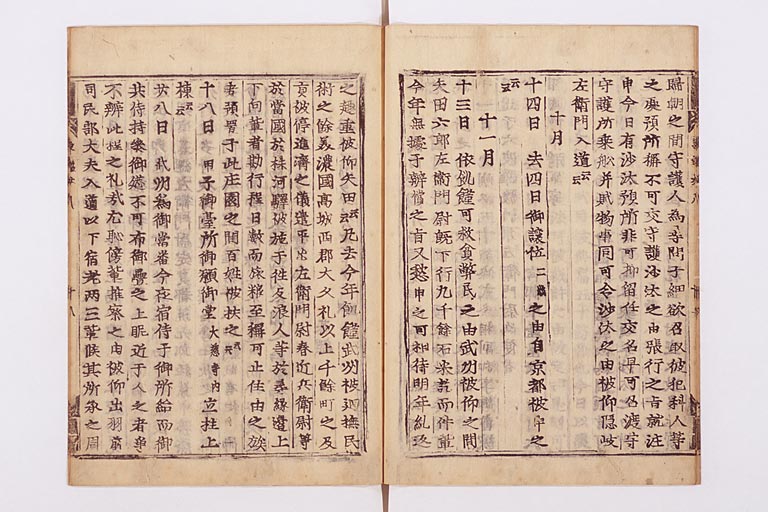 歸朝之間守護人爲尋問子細欲召取彼犯科人等
之處預所稱不可交守護沙汰之由張行之旨就注
申今日有沙汰預所非可抑留任交名早可召渡守
守護所乘船并賦物事同可令沙汰之由被仰隱岐
左衛門入道云云
十月
十四日　去四日御讓位二歳之由自京都被申之
云云
十一月
十三日　依飢饉可救貧弊民之由武州被仰之間
矢田六郎左衛門尉既下行九千餘石米訖而件輩
今年無據于辨償之旨又愁申之可相待明年糺返
之趣重被仰矢田云云凡去今年飢饉武州被廻撫民
術之餘美濃國高城西郡大久礼以上千餘町之及
貢被停進濟之儀遣平出左衛門尉春近兵衛尉等
於當國於株河驛被施于往反浪人等於尋緣邊上
下向輩者勘行程日數而旅粮至稱可止住由之族
者預置于此庄園之間百姓被扶之云云
十八日　甲子御臺所御願御堂大慈寺内立柱上
棟云云
廿八日　武州爲御當番今夜宿侍于御所給而御
共侍持參御莚不可有御疊之上昵近于人之者爭
不辨此程之礼哉且恥傍輩推察之由被仰出羽前
司民部大夫入道以下宿老兩三輩候其所承之周